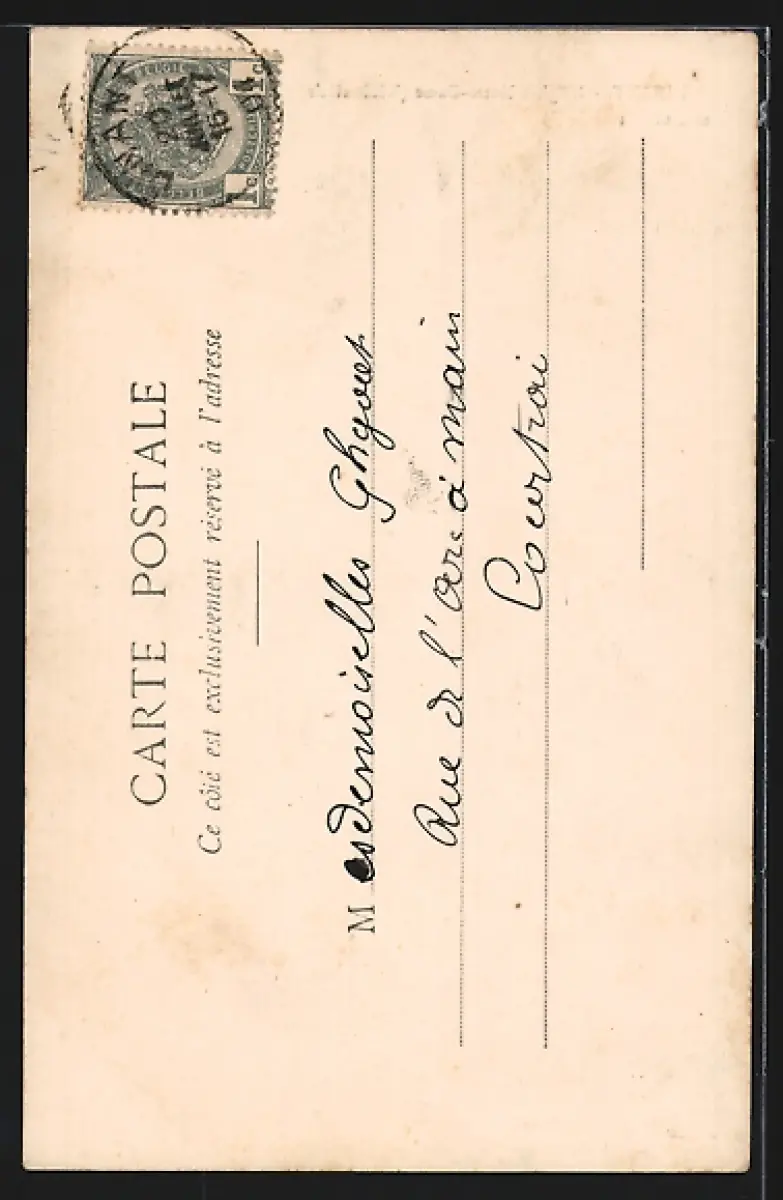 CARTE POSTALE
Ce côté est exclusivement réservé à l'adresse
Mesdemoiselles Ghyoot
Rue de l'arc à main
Courtrai
1 c
1 c